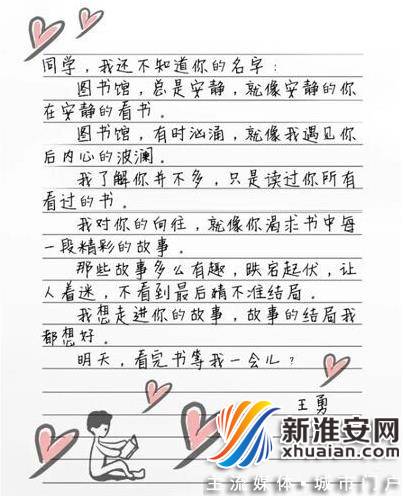 同学，我还不知道你的名字：
图书馆，总是安静，就像安静的你
在安静的看书．
图书馆，有时汹涌，就像我遇见你
后内心的波澜．
我了解你并不多，只是读过你所有
看过的书．
我对你的向往，就像你渴求书中每
一段精彩的故事．
那些故事多么有趣，跌宕起伏，让
人着迷，不看到最后猜不准结局．
我想走进你的故事，故事的结局我
都想好．
明天，看完书等我一会儿？
王勇
新淮安网
xhuaian.com
主流媒体·城市门户